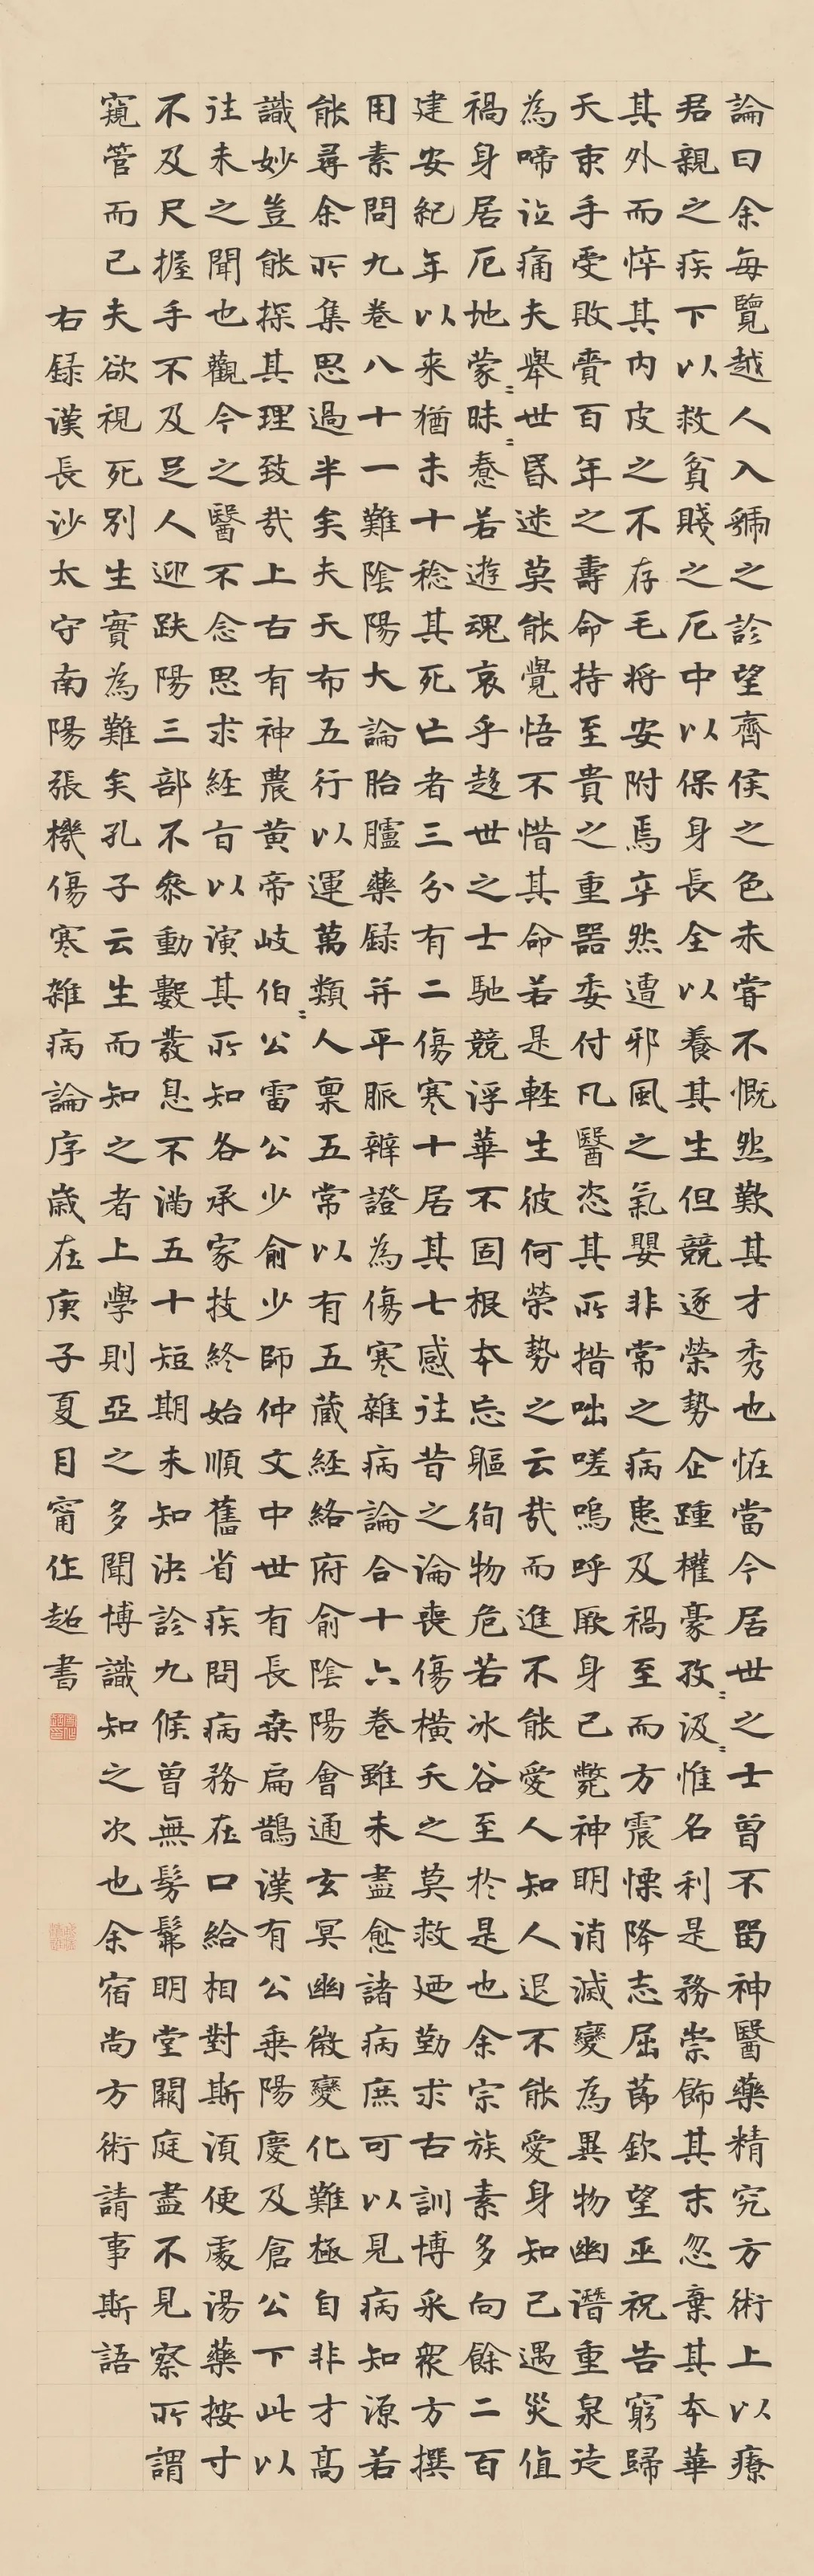 論曰余每覽越人入虢之診望齊侯之色未甞不慨然歎其才秀也恠當今居世之士曾不畱神醫藥精究方術上以療
君親之疾下以救貧賤之厄中以保身長全以養其生但競逐榮勢企踵權豪孜〻汲〻惟名利是務崇飾其末忽棄其本華
其外而悴其內皮之不存毛將安附焉卒然遭邪風之氣嬰非常之病患及禍至而方震慄降志屈節欽望巫祝告窮歸
天束手受敗賫百年之壽命持至貴之重器委付凡醫恣其所措咄嗟嗚呼厥身已斃神明消滅變為異物幽潛重泉徒
為啼泣痛夫舉世昏迷莫能覺悟不惜其命若是輕生彼何榮勢之云哉而進不能愛人知人退不能愛身知己遇災值
禍身居厄地蒙〻昧〻惷若遊魂哀乎趨世之士馳競浮華不固根本忘軀徇物危若冰谷至於是也余宗族素多向餘二百
建安紀年以来猶未十稔其死亡者三分有二傷寒十居其七感往昔之論喪傷橫夭之莫救廼勤求古訓博采衆方撰
用素問九卷八十一難陰陽大論胎臚藥録并平脈辨證為傷寒雜病論合十六卷雖未盡愈諸病庶可以見病知源若
能尋余所集思過半矣夫天布五行以運萬類人稟五常以有五藏經絡府俞陰陽會通玄冥幽微變化難極自非才高
識妙豈能探其理致哉上古有神農黄帝岐伯〻公雷公少俞少師仲文中世有長桑扁鵲漢有公乘陽慶及倉公下此以
往未之聞也觀今之醫不念思求經旨以演其所知各承家技終始順舊省疾問病務在口給相對斯須便處湯藥按寸
不及尺握手不及足人迎趺陽三部不參動數發息不滿五十短期未知決診九候曾無髣髴明堂闕庭盡不見察所謂
窺管而已夫欲視死別生實為難矣孔子云生而知之者上學則亞之多聞博識知之次也余宿尚方術請事斯語
右録漢長沙太守南陽張機傷寒雜病論序歲在庚子夏日甯作超書